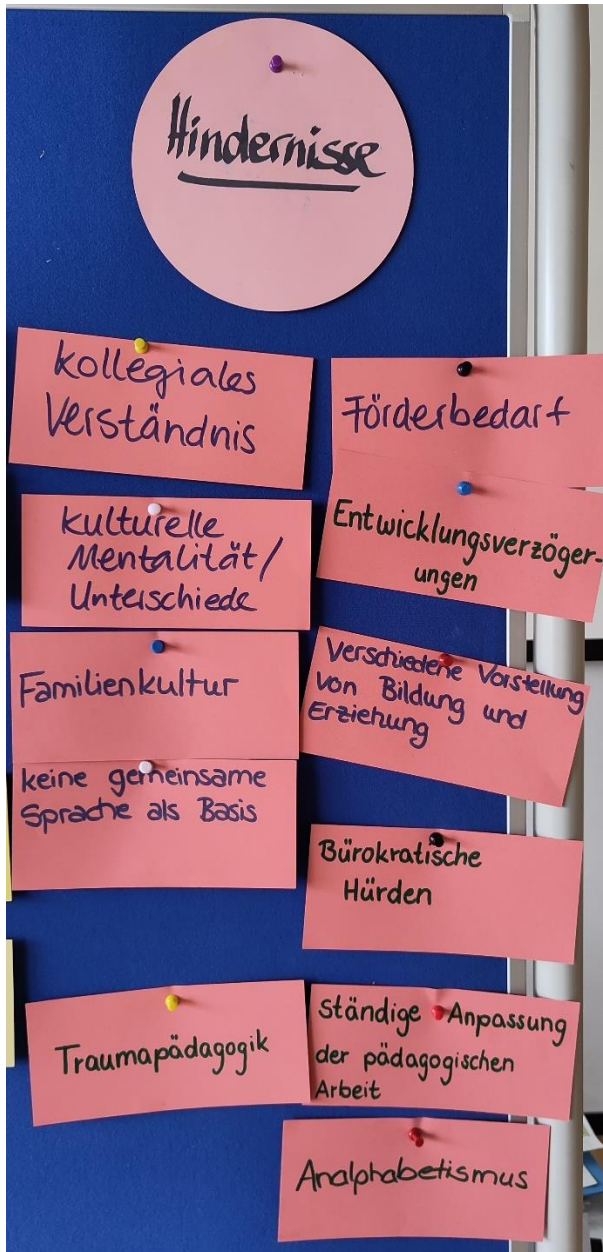 Hindernisse
kollegiales
Verständnis
kulturelle
Mentalität/
Unterschiede
Familienkultur
keine gemeinsame
Sprache als Basis
Traumapädagogik
Förderbedarf
Entwicklungsverzöger-
ungen
Verschiedene Vorstellung
von Bildung und
Erziehung
Bürokratische
Hürden
ständige Anpassung
der pädagogischen
Arbeit
Analphabetismus